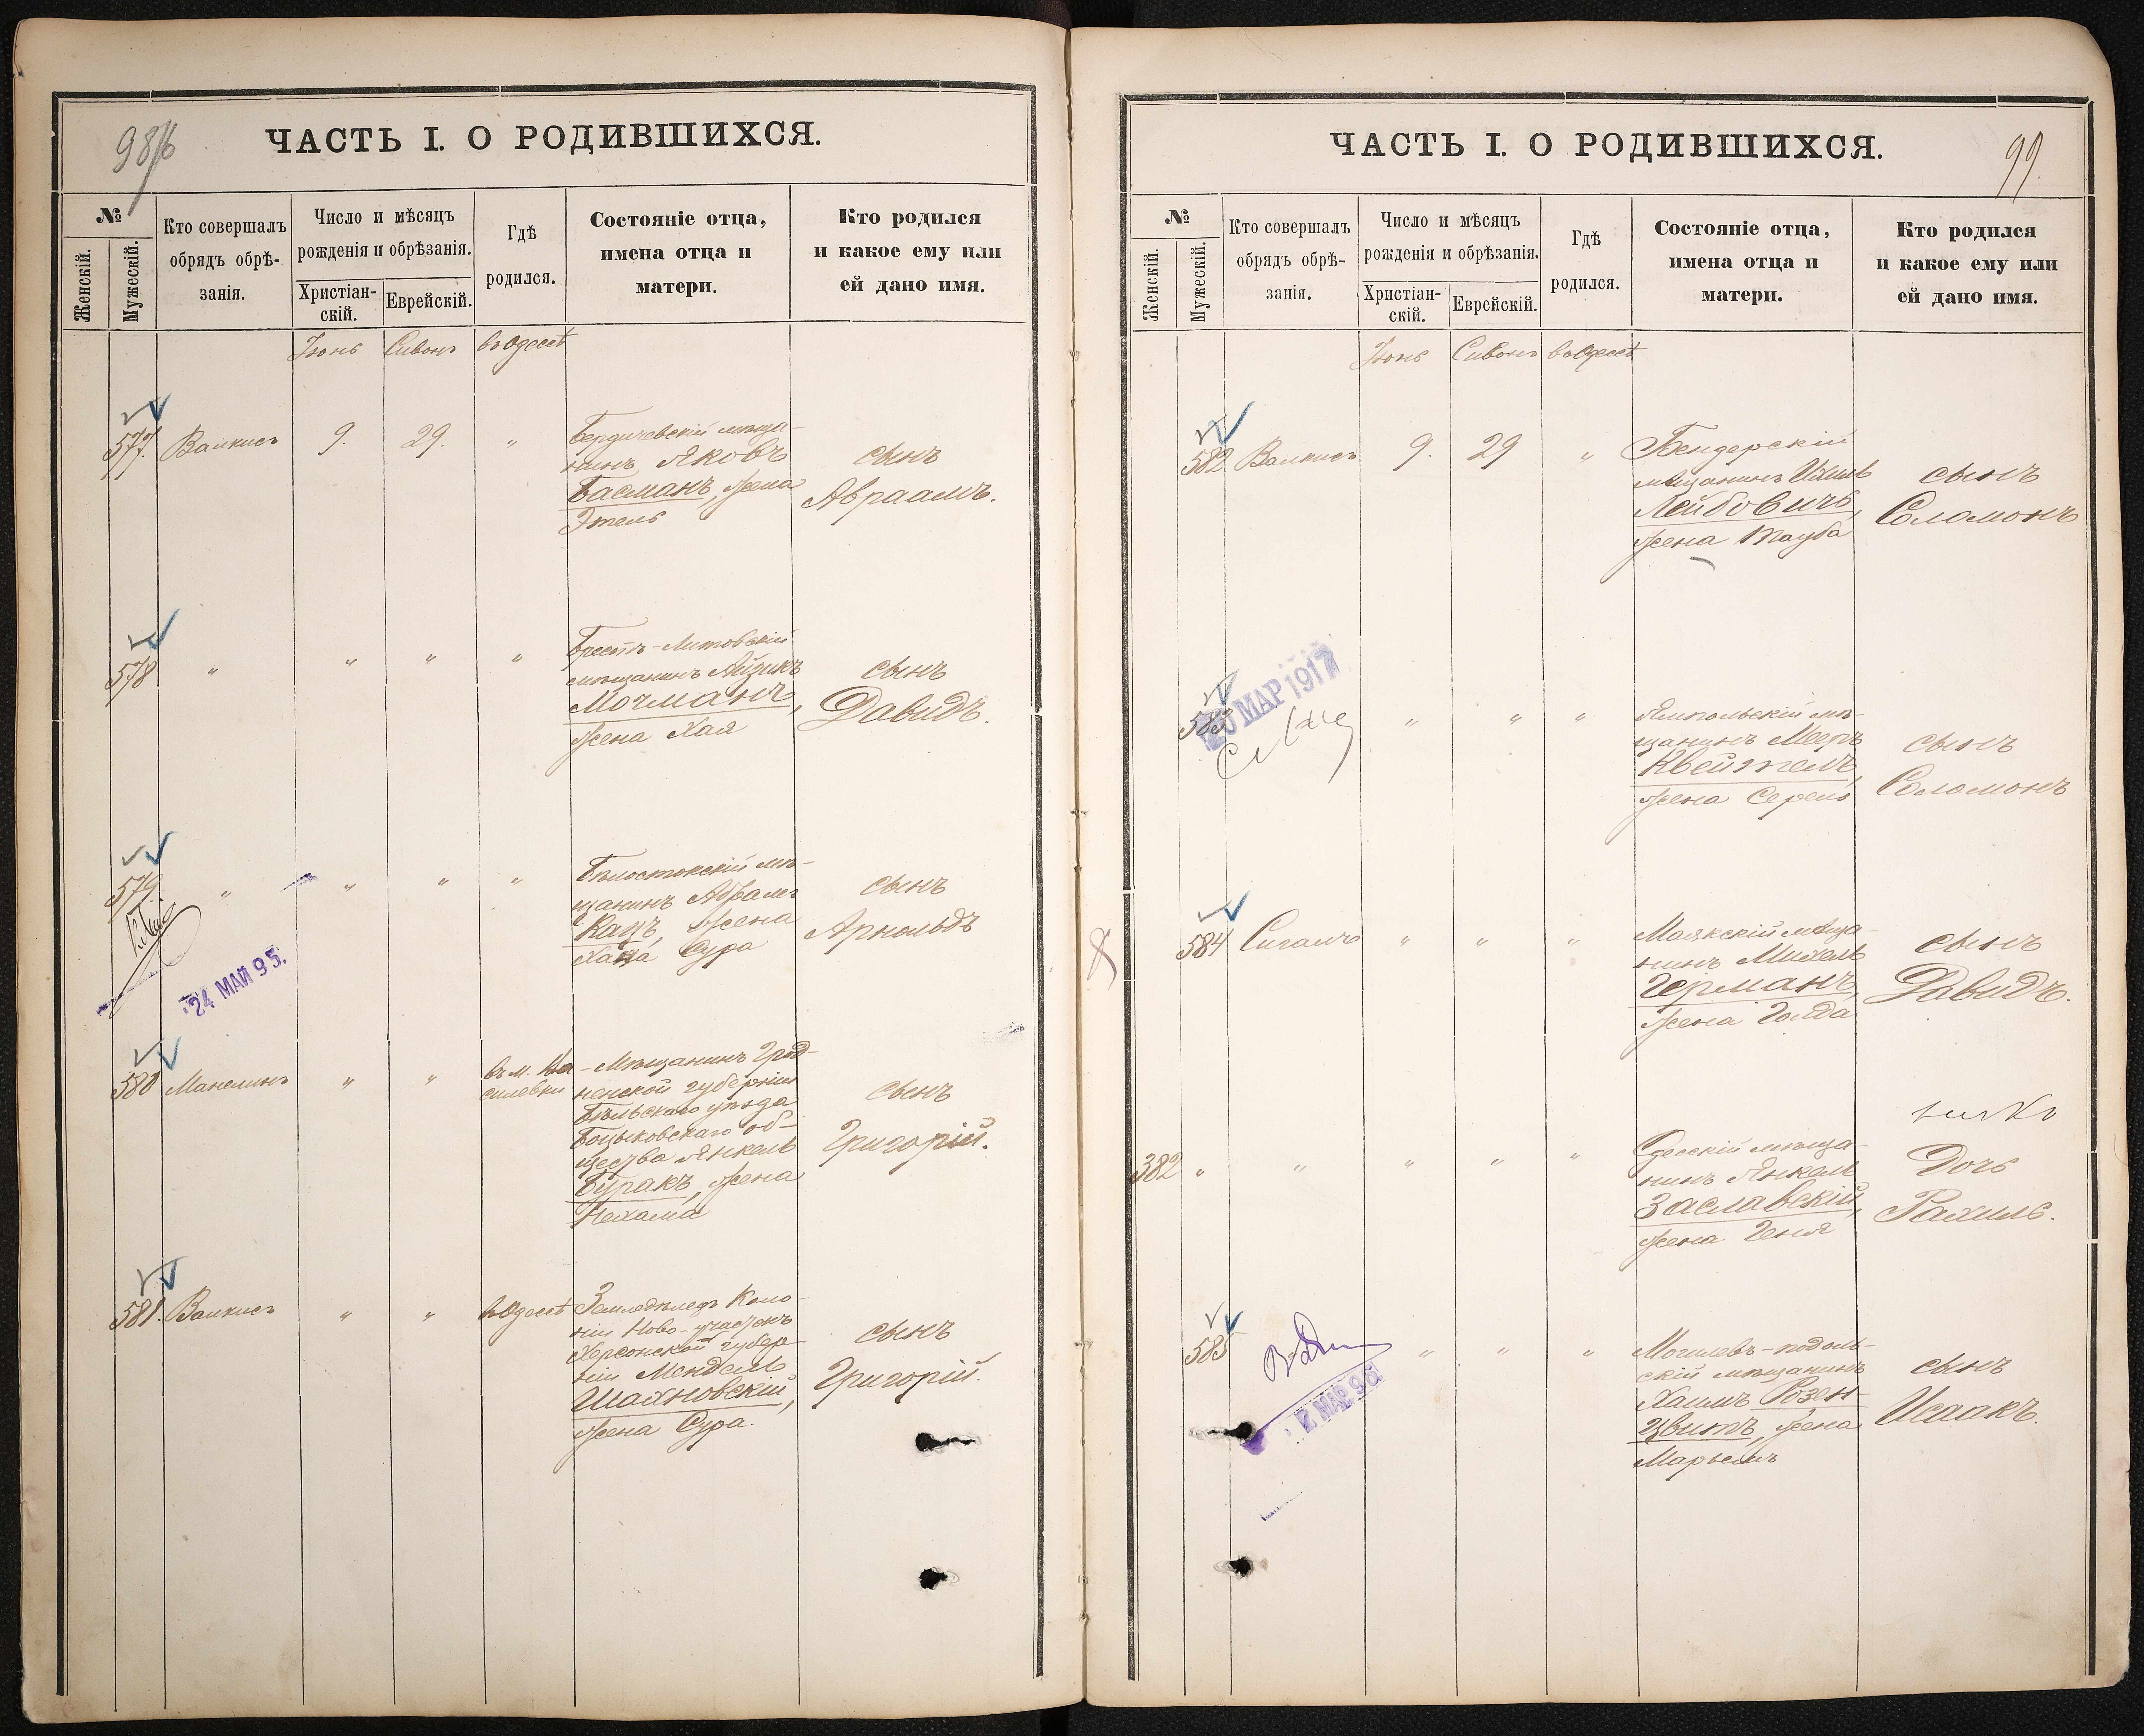 98/б
ЧАСТЬ I. О РОДИВШИХСЯ.
№
Женскій.
Мужескій.
Кто совершалъ
обрядъ обрѣ-
занія.
Число и мѣсяцъ
рожденія и обрѣзанія.
Христіан-
скій.
Еврейскій.
Гдѣ
родился.
Состояніе отца,
имена отца и
матери.
Кто родился
и какое ему или
ей дано имя.
Іюнь Сивонъ въ Одессѣ
577. Валкисъ 9. 29. "
Бердичевскій мѣща-
нинъ Яковъ
Басманъ, жена
Этель
сынъ
Авраамъ.
578 " " " "
Брестъ-Литовскій
мѣщанинъ Айзикъ
Мочманъ,
жена Хая
сынъ
Давидъ.
579. " " " "
Бѣлостокскій мѣ-
щанинъ Абрамъ
Кацъ, жена
Хана Сура
сынъ
Арнольдъ
24 МАЙ 95.
580 Манелинъ " "
въ м. Ва-
силевки
Мѣщанинъ Грод-
ненской губерніи
Бѣльскаго уѣзда
Боцьковскаго об-
щества Янкель
Буракъ, жена
Нехама
сынъ
Григорій.
581. Валкисъ " " въ Одессѣ
Земледѣлецъ Коло-
ніи Ново-участокъ
Херсонской губер
ніи Мендель
Шахновскій,
жена Сура.
сынъ
Григорій.
99.
ЧАСТЬ I. О РОДИВШИХСЯ.
№
Женскій.
Мужескій.
Кто совершалъ
обрядъ обрѣ-
занія.
Число и мѣсяцъ
рожденія и обрѣзанія.
Христіан-
скій.
Еврейскій.
Гдѣ
родился.
Состояніе отца,
имена отца и
матери.
Кто родился
и какое ему или
ей дано имя.
Іюнь Сивонъ въ Одессѣ
582 Валкисъ 9. 29 "
Бендерскій
мѣщанинъ Ихиль
Лейбовичъ,
жена Тауба
сынъ
Соломонъ
20 МАР 1917
583 " " "
Ямпольскій мѣ-
щанинъ Мееръ
Квейтель,
жена Серель
сынъ
Соломонъ
584 Сигалъ " " "
Маякскій мѣща-
нинъ Михель
Германъ,
жена Голда
сынъ
Давидъ.
382 " " " " "
Одесскій мѣща-
нинъ Янкель
Заславскій,
жена Геня
Дочь
Рахиль.
585 " " "
Могилевъ-подоль-
скій мѣщанинъ
Хаимъ Розен-
цвитъ, жена
Марьемъ
сынъ
Исаакъ.